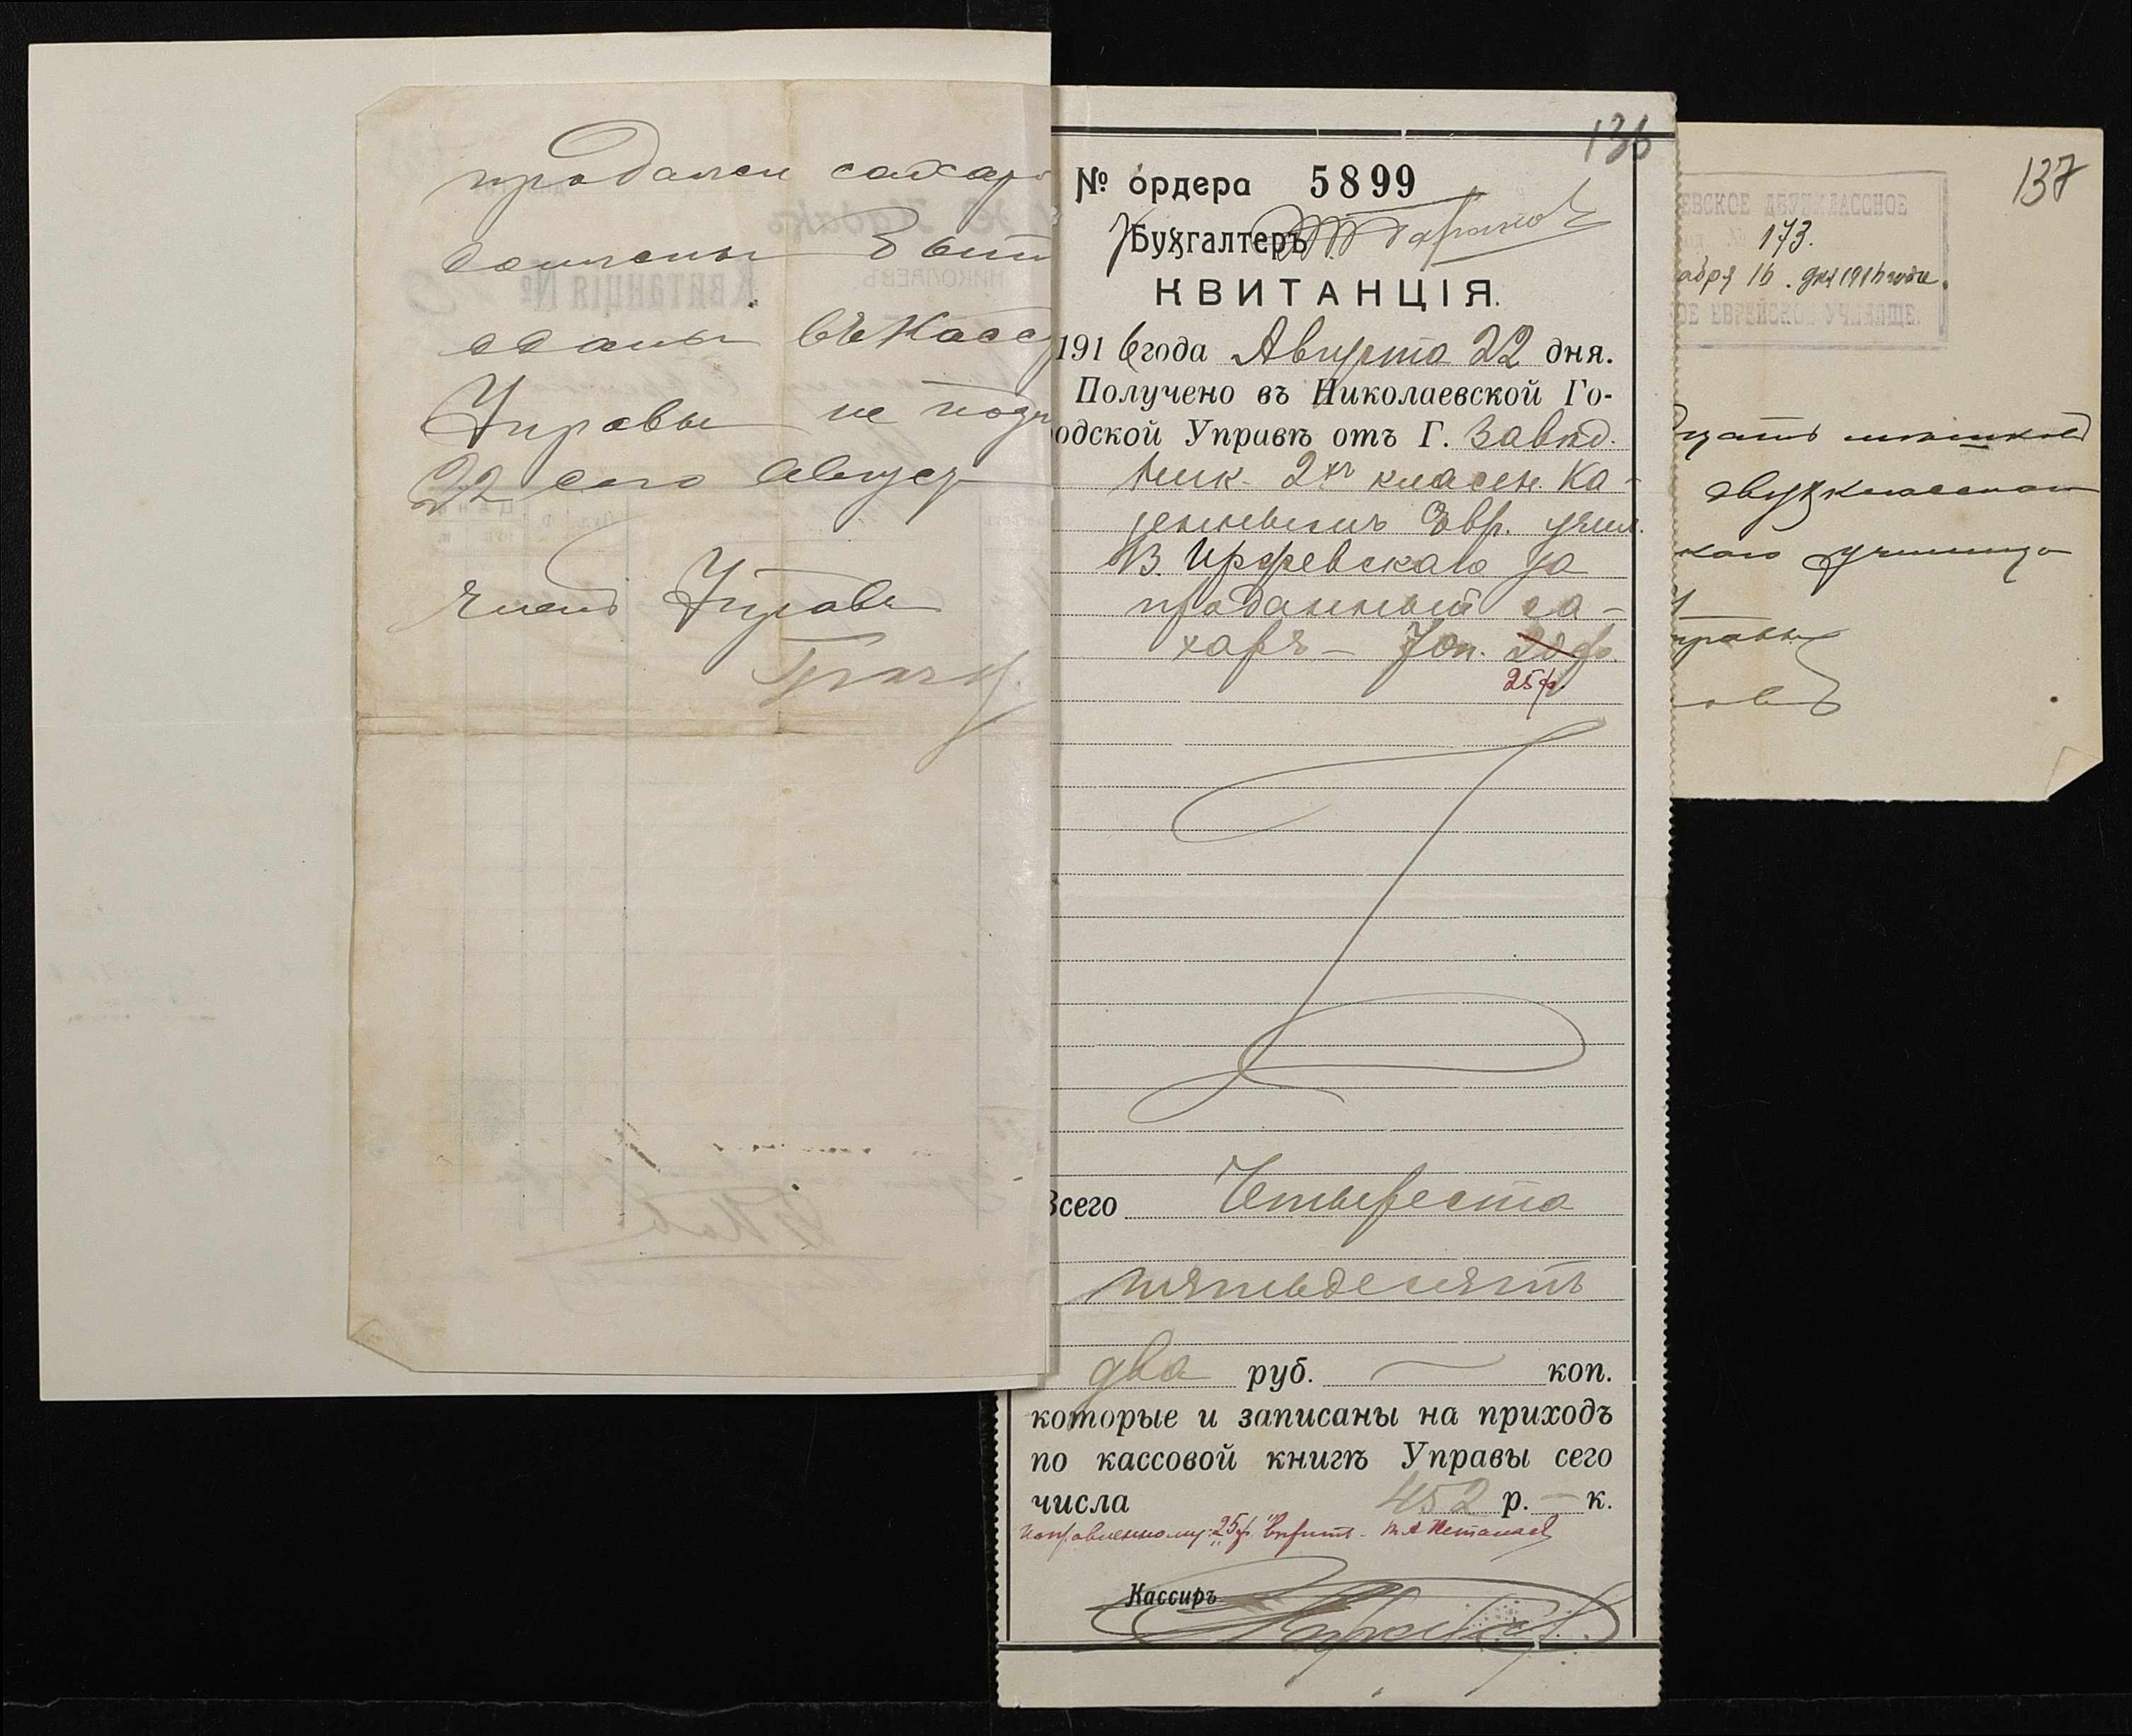 продажи сахар
должны быть
сданы въ Кассу
Управы не позд
22 сего Августа
Членъ Управы
136
№ ордера 5899
Бухгалтеръ
КВИТАНЦІЯ.
1916 года Августа 22 дня.
Получено въ Николаевской Го-
одской Управѣ отъ Г. Завѣд.
Ник. 2хъ класск. Ка-
зеннымъ Евр. учил.
за
проданный са-
харъ – 70 п. 20 ф.
25 ф.
Всего Четыреста
пятьдесятъ
два руб. — коп.
которые и записаны на приходъ
по кассовой книгѣ Управы сего
числа 452 р. — к.
Исправленному: "25 ф." вѣрить.
Кассиръ
137
ЕВСКОЕ ДВУХКЛАССНОЕ
№ 173.
абря 16 дня 1916 года.
ОЕ ЕВРЕЙСКОЕ УЧИЛИЩЕ.
дцать мѣшковъ
двухклассном
каго училища
правы
овъ